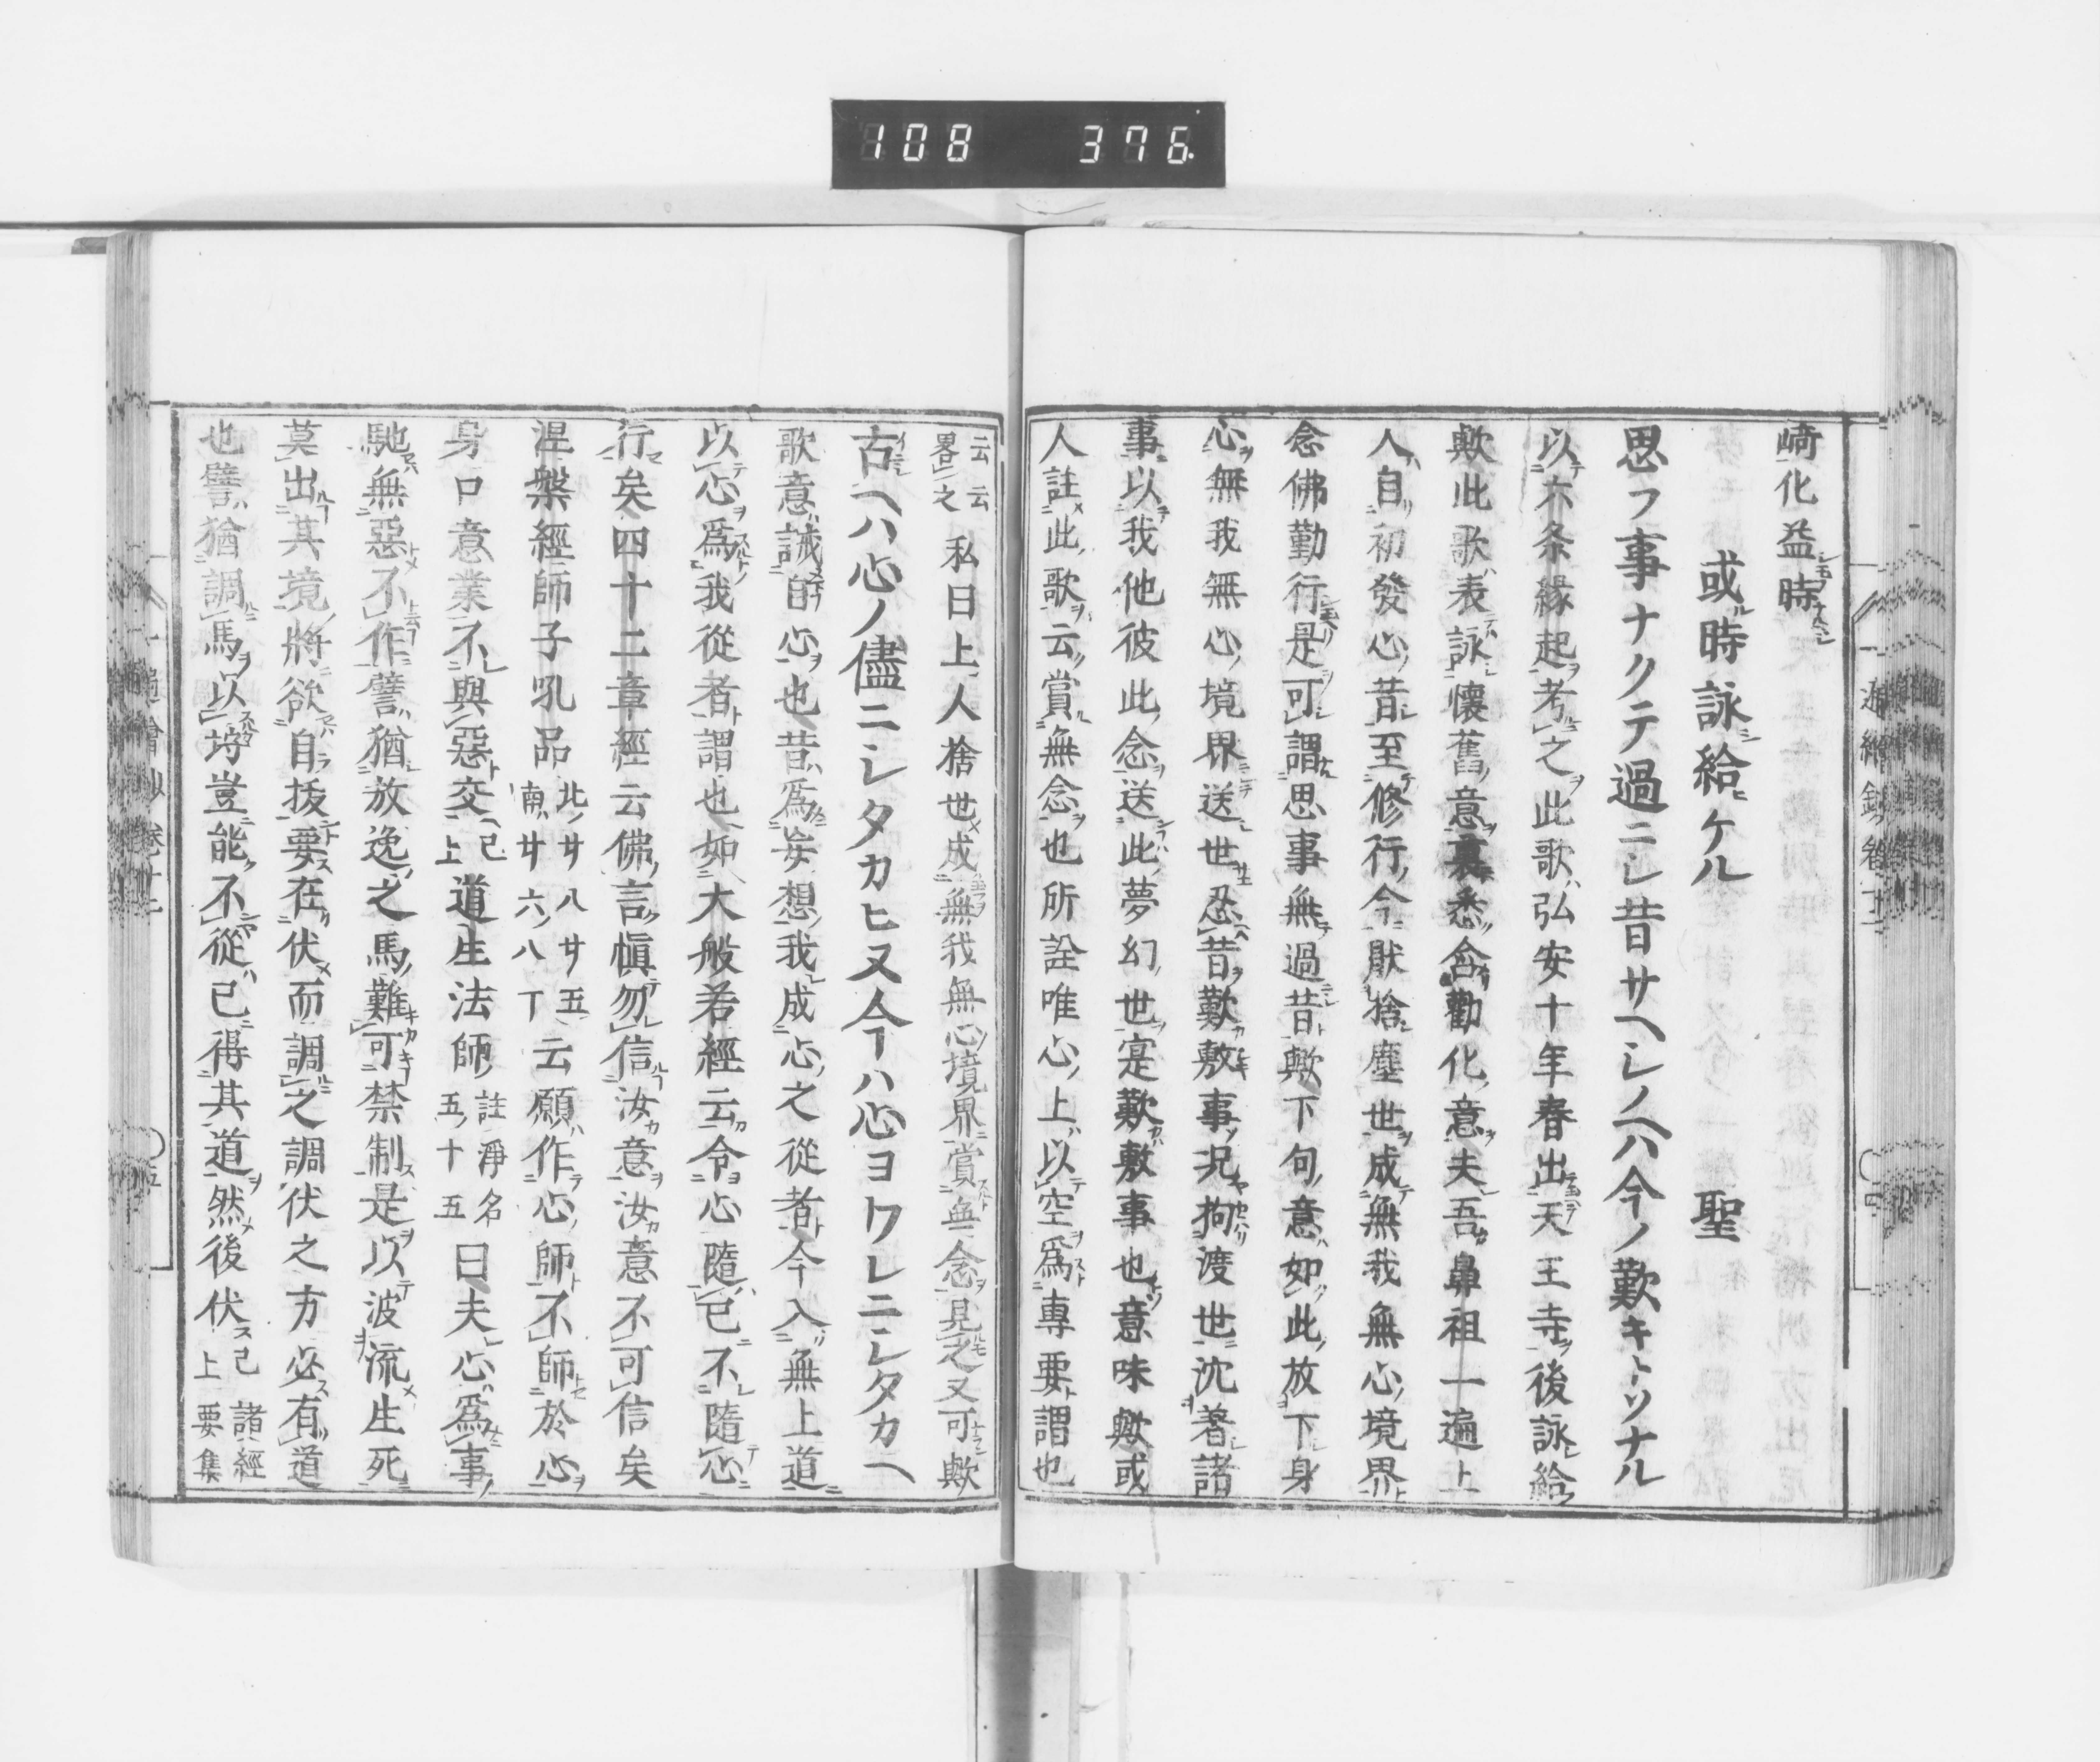 108 376.
崎化益時
或時詠給ケル 聖
思フ事ナクテ過ニシ昔サヘシノヘハ今ノ歎キトソナル
以六条縁起考之此歌弘安十年春出天王寺後詠給
歟此歌表詠懷舊意裏悉含勸化意夫吾鼻祖一遍上
人自初發心昔至修行今猒捨塵世成無我無心境界
念佛勤行是可謂思事無過昔歟下句意如此放下身
心無我無心境界送世忍昔歎敷事況拘渡世沈著諸
事以我他彼此念送此夢幻世寔歎敷事也意味歟或
人註此歌云賞無念也所詮唯心上以空爲專要謂也
云云
畧之 私曰上人捨世成無我無心境界賞無念見之又可歟
古ヘハ心ノ儘ニシタカヒヌ今ハ心ヨワレニシタカヘ
歌意誡自心也昔爲妄想我成心之從者今入無上道
以心爲我從者謂也如大般若經云令心隨已不隨心
行矣四十二章經云佛言愼勿信汝意汝意不可信矣
涅槃經師子吼品北ノ廿八廿五
南ノ廿六ノ八丁云願作心師不師於心
身口意業不與惡交已
上道生法師註淨名
五ノ十五曰夫心爲事
馳無惡不作譬猶放逸之馬難可禁制是以波流生死
莫出其境將欲自拔要在伏而調之調伏之方必有道
也譬猶調馬以埒豈能不從已得其道然後伏已
上諸經
要集